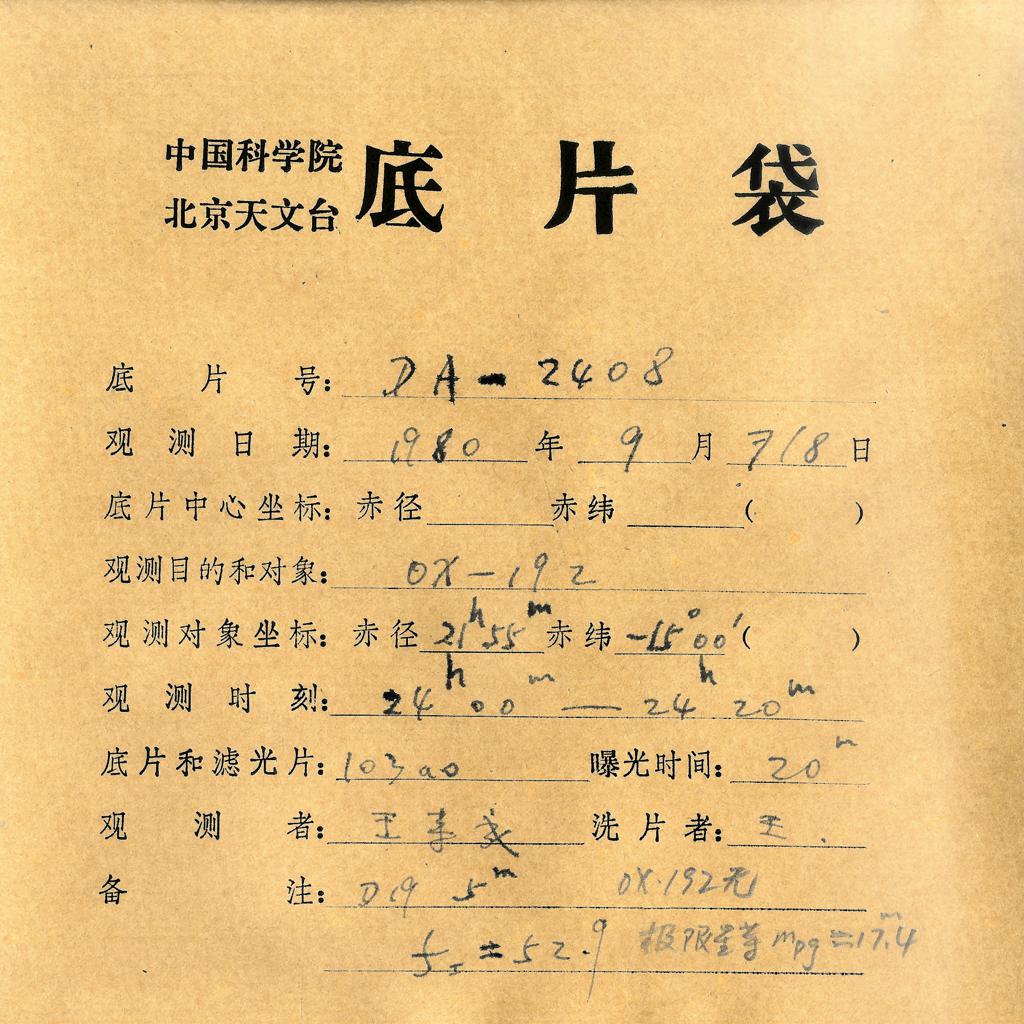 中国科学院
北京天文台
底片袋
底片号: DA-2408
观测日期: 1980年9月7/8日
底片中心坐标: 赤径 赤纬 ( )
观测目的和对象: OX-192
观测对象坐标: 赤径 21h55m 赤纬 -15°00′ ( )
观测时刻: 24h00m — 24h20m
底片和滤光片: 103a0 曝光时间: 20m
观测者: 王 洗片者: 王.
备注: D19 5m OX·192无
=52.9 极限星等 mpg=17.4m